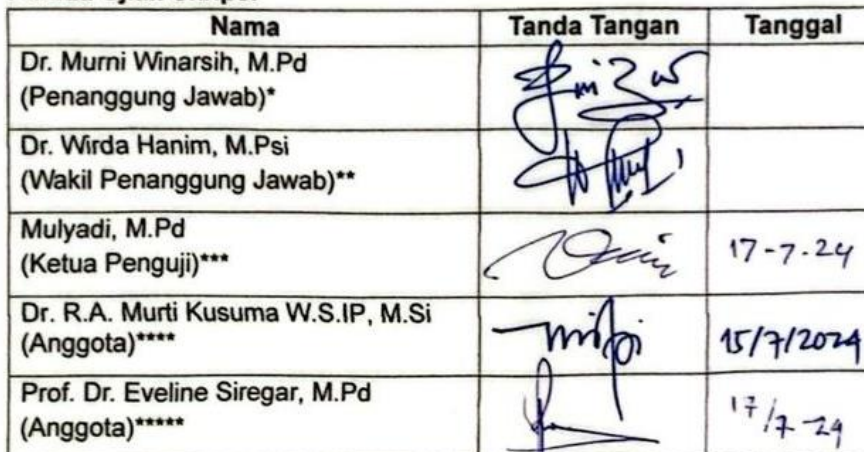 Nama Tanda Tangan Tanggal
Dr. Murni Winarsih, M.Pd
(Penanggung Jawab)*
Dr. Wirda Hanim, M.Psi
(Wakil Penanggung Jawab)**
Mulyadi, M.Pd
(Ketua Penguji)*** 17-7-24
Dr. R.A. Murti Kusuma W.S.IP, M.Si
(Anggota)**** 15/7/2024
Prof. Dr. Eveline Siregar, M.Pd
(Anggota)***** 17/7-24